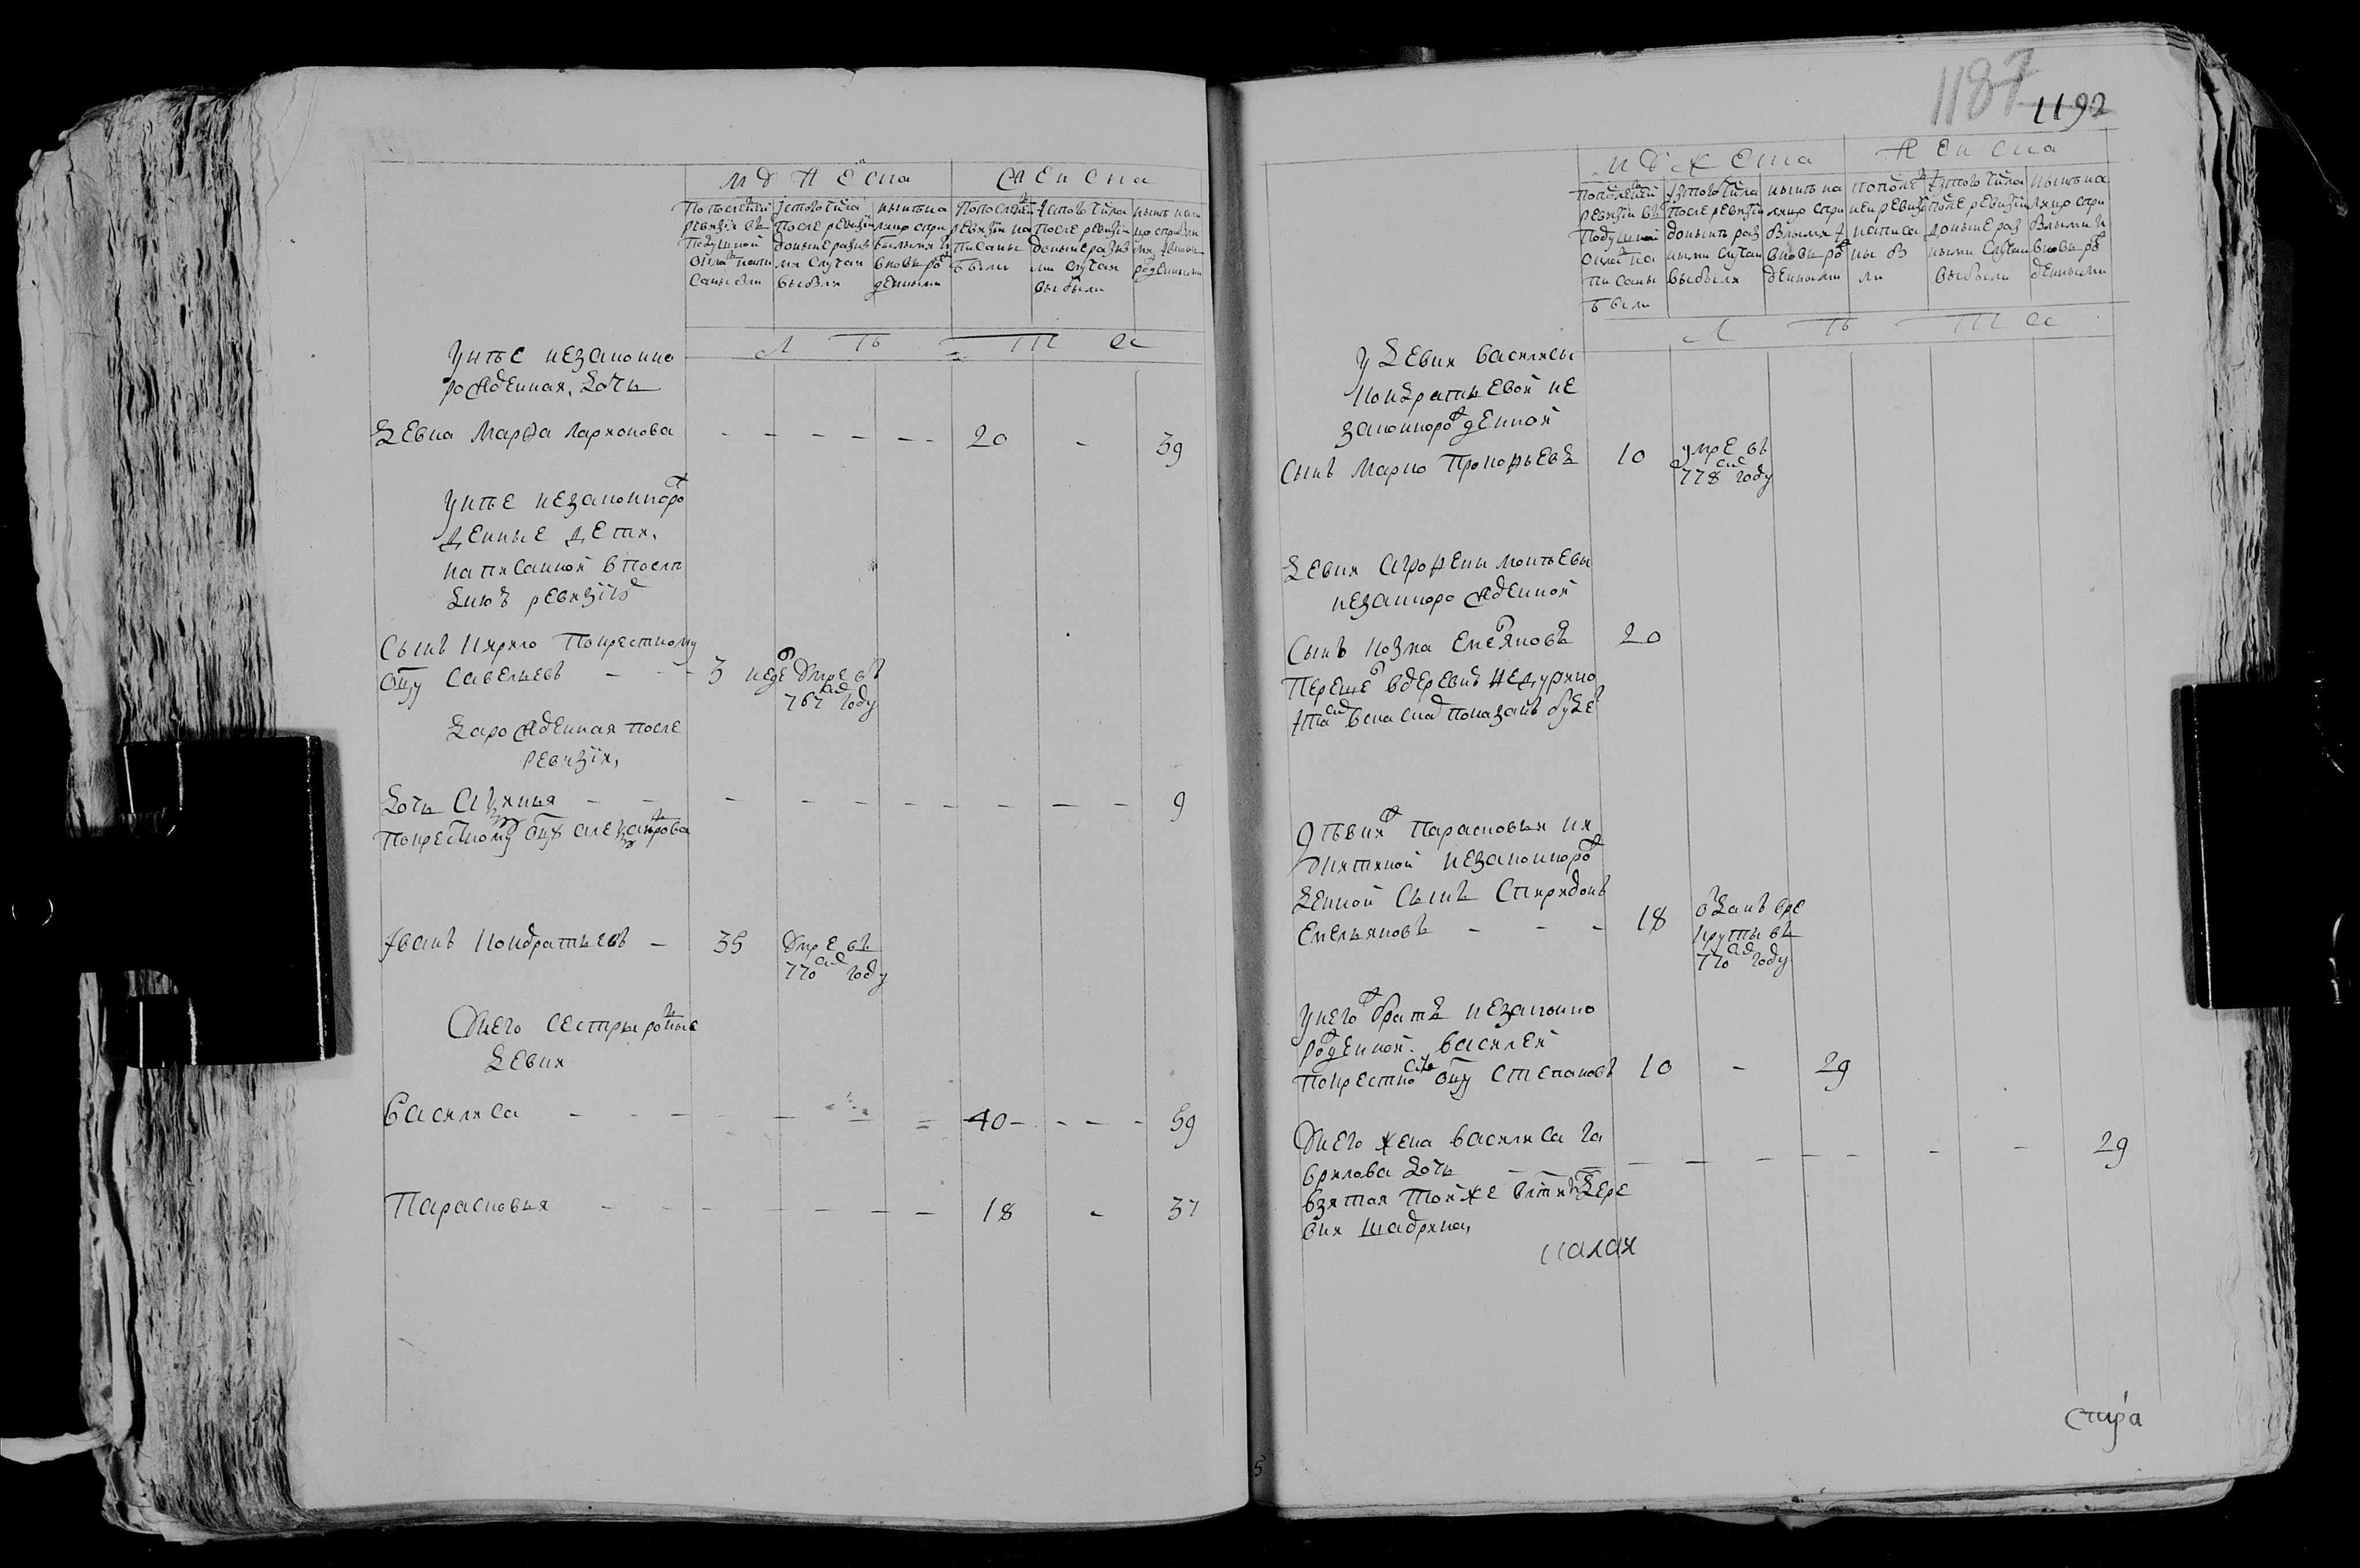 Мужеска
Женска
По последней
ревизіи въ
подушной
окладъ напи
саны были
Ізтого числа
после ревизіи
доныне разны
ми случаи
выбыли
ныне на
лицо с при
былыми и
вновь рож
денными
По последней
ревизіи на
писаны
были
Ізтого числа
после ревизіи
доныне разны
ми случаи
выбыли
Лѣта
у нъе незаконно
рожденная дочь
девка Марфа Ларионова - - - - - - 20 - 39
у нъе незаконнорож
денные дети
написанной в после
днюю ревизию
Сынъ Кирило по крестному
отцу Савельевъ - - 3 недел умре въ
767 году
Зарожденная после
ревизіи
дочь Аѯинья - - - - - - - - 9
по крестному отцу Алеѯандрова
Іванъ Кондратьевъ - 35 умре въ
770 году
У него сестры родные
девки
Василиса - - - - - 40 - - - 59
Парасковья - - - - - - 18 - 37
1187
1192
Мужеска
Женска
по последней
ревизіи въ
подушной
окладъ на
писаны
были
Ізтого числа
после ревизіи
доныне раз
ными случаи
выбыли
ныне на
лицо с при
былыми и
вновь рож
денными
Ізтого числа
после ревизіи
доныне раз
ными случаи
выбыли
ныне на
лицо с при
былыми и
вновь рож
денными
Лѣта
у девки Василисы
Кондратьевой не
законнорожденной
Сынъ Марко Прокофьевъ 10 умре въ
778 году
девки Агрофены
незаконорожденной
Сынъ Козма Емельяновъ 20
Перешел в деревню
и тамо в показанъ будет
у девки Парасковьи Ни
китиной незаконнорож
денной Сынъ Спиридонъ
Емельяновъ - - - 18 отданъ в ре
круты въ
770 году
у него братъ незаконно
рожденной Василей
по крестному отцу Степановъ 10 - 29
У него жена Василиса Га
врилова дочь - - - - - - - - 29
взятая той же вотчины дере
вни Шадрина
стара